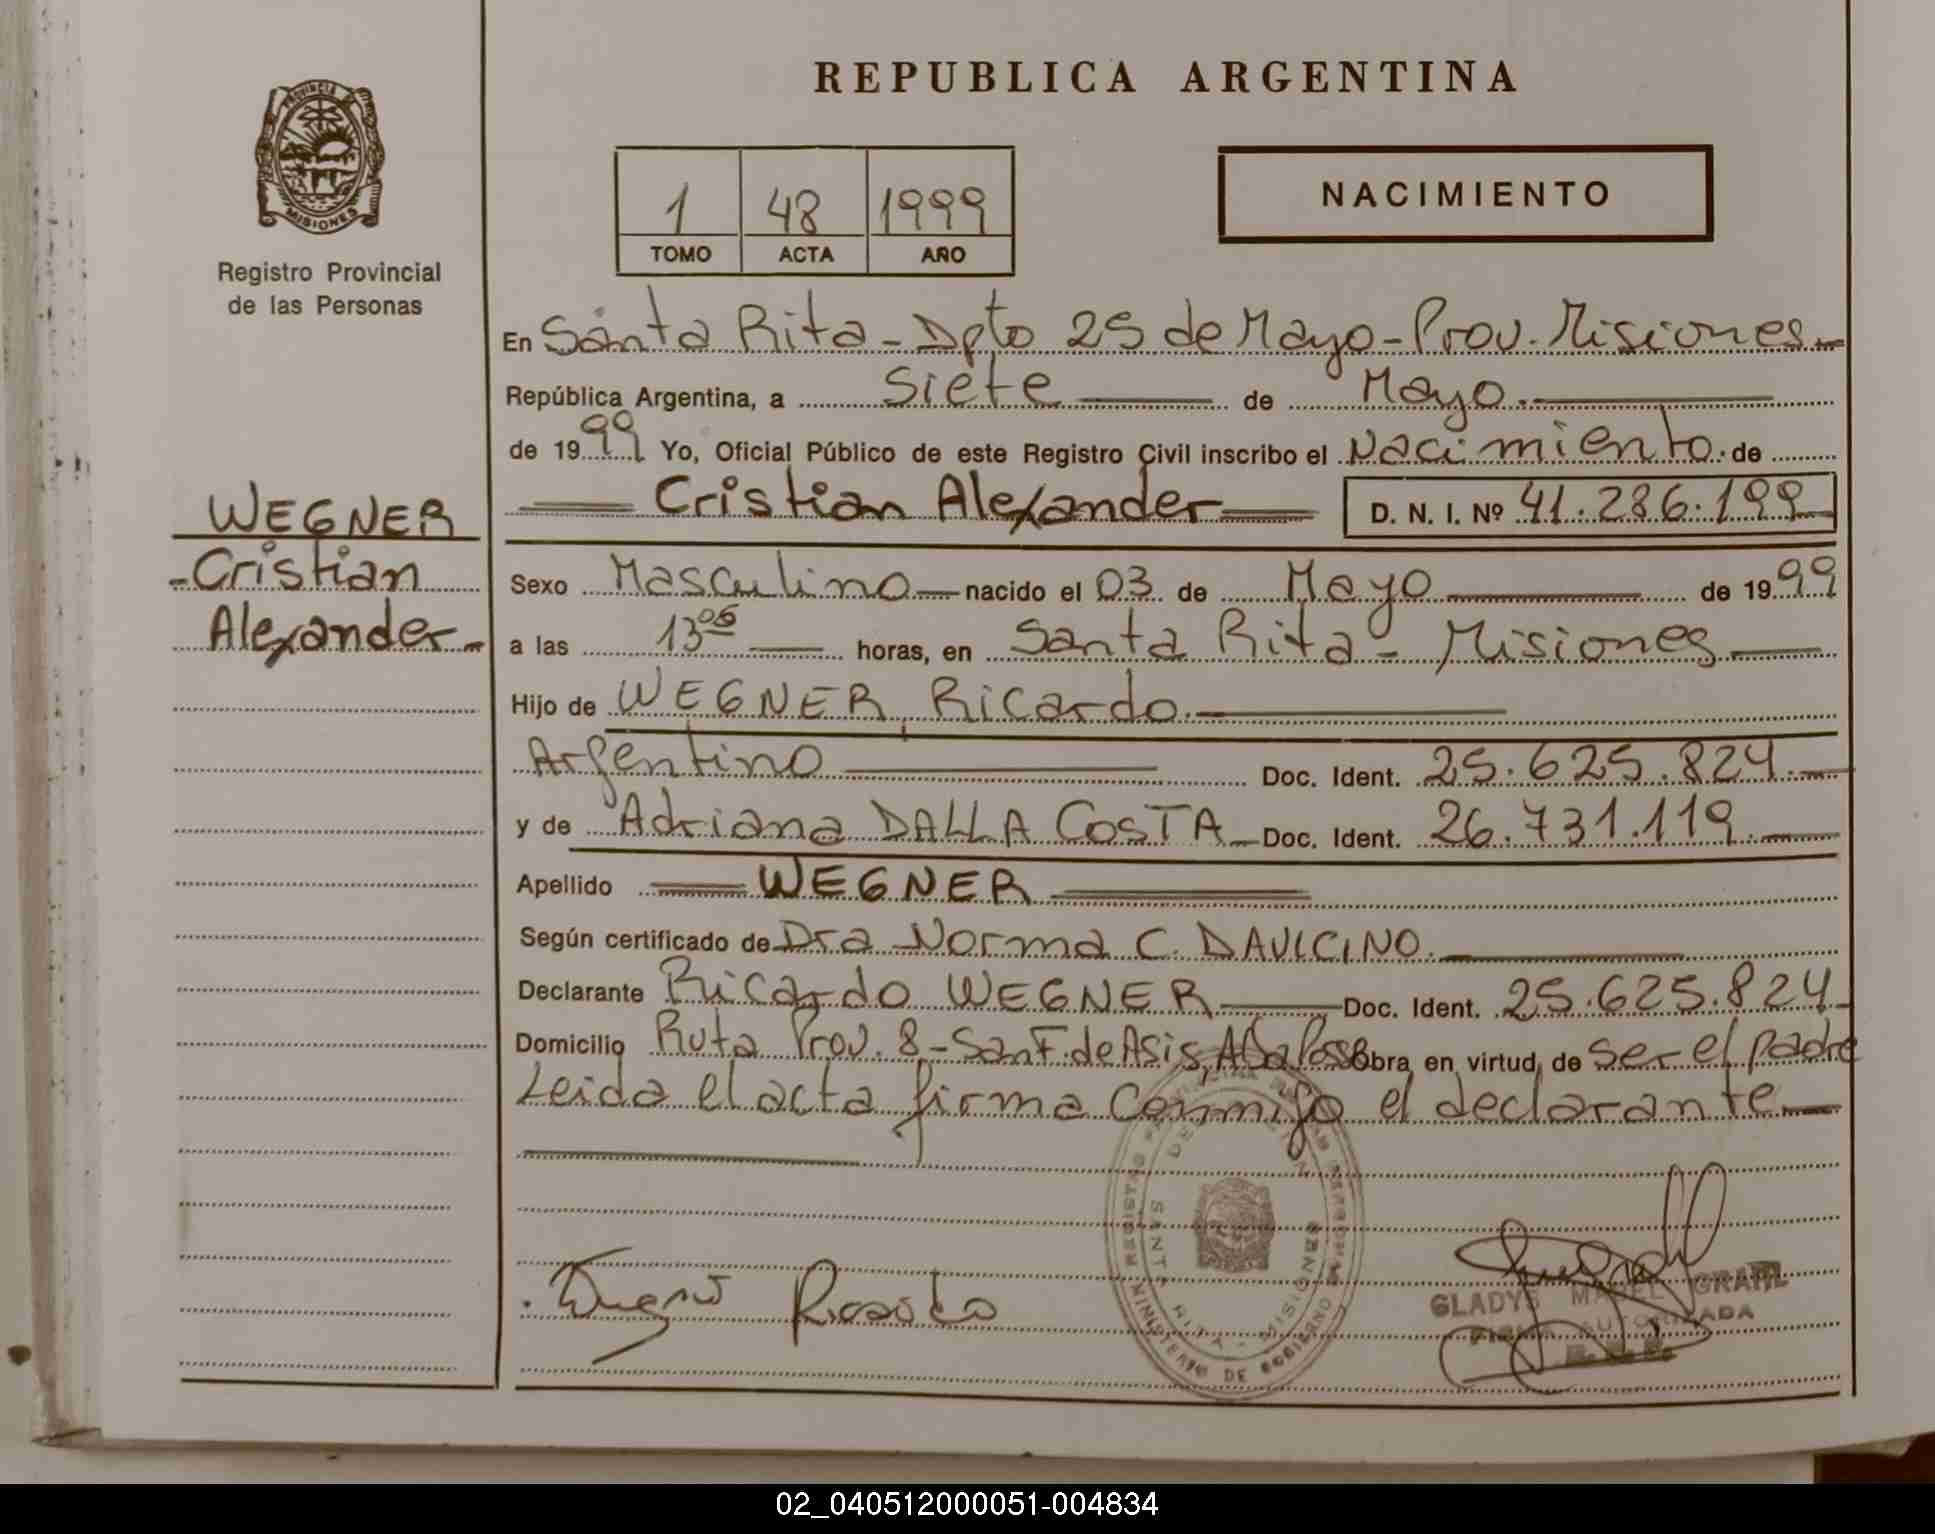 REPUBLICA ARGENTINA
PROVINCIA DE
MISIONES
Registro Provincial
de las Personas
1 48 1999
TOMO ACTA AÑO
NACIMIENTO
En Santa Rita - Dpto 25 de Mayo - Prov. Misiones
República Argentina, a siete de Mayo.
de 1999 Yo, Oficial Público de este Registro Civil inscribo el Nacimiento de
Cristian Alexander D. N. I. Nº 41.286.199
WEGNER
-Cristian
Alexander-
Sexo Masculino nacido el 03 de Mayo de 1999
a las 13 06 horas, en Santa Rita - Misiones
Hijo de WEGNER, Ricardo.
Argentino Doc. Ident. 25.625.824.
y de Adriana DALLA COSTA Doc. Ident. 26.731.119.
Apellido WEGNER
Según certificado de Dra Norma C. DAULCINO.
Declarante Ricardo WEGNER Doc. Ident. 25.625.824
Domicilio Ruta Prov. 8 - San F. de Asis, Obra en virtud de ser el padre
Leida el acta firma conmigo el declarante
MINISTERIO DE GOBIERNO
SANTA RITA - MISIONES
GLADYS MABEL GRAHL
FIRMA AUTORIZADA
02_040512000051-004834